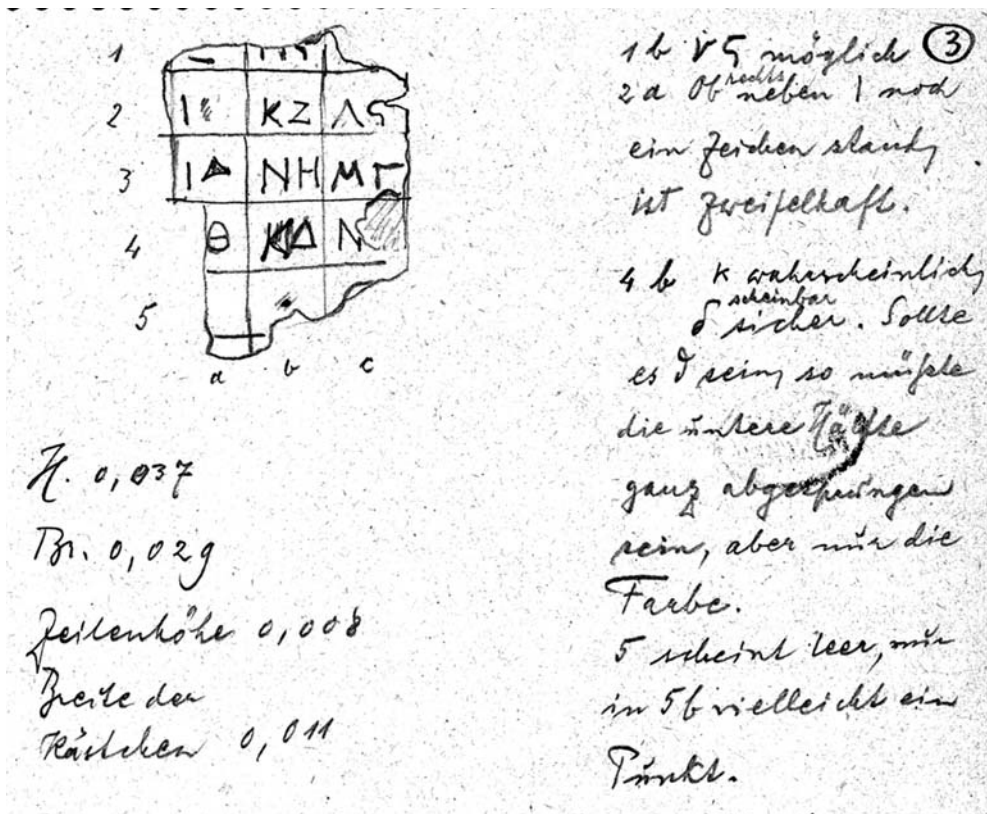 1
2 Ι ΚΖ ΛϚ
3 ΙΔ ΝΗ ΜΓ
4 Θ ΚΔ Ν
5
a b c
H. 0,037
Br. 0,029
Zeilenhöhe 0,008
Breite der
Kästchen 0,011
③
1 b νϚ möglich
2 a Ob rechts neben Ι noch
ein Zeichen stand,
ist zweifelhaft.
4 b κ wahrscheinlich,
δ scheinbar sicher. Sollte
es θ sein, so müßte
die untere Hälfte
ganz abgesprungen
sein, aber nur die
Farbe.
5 scheint leer, nur
in 5b vielleicht ein
Punkt.